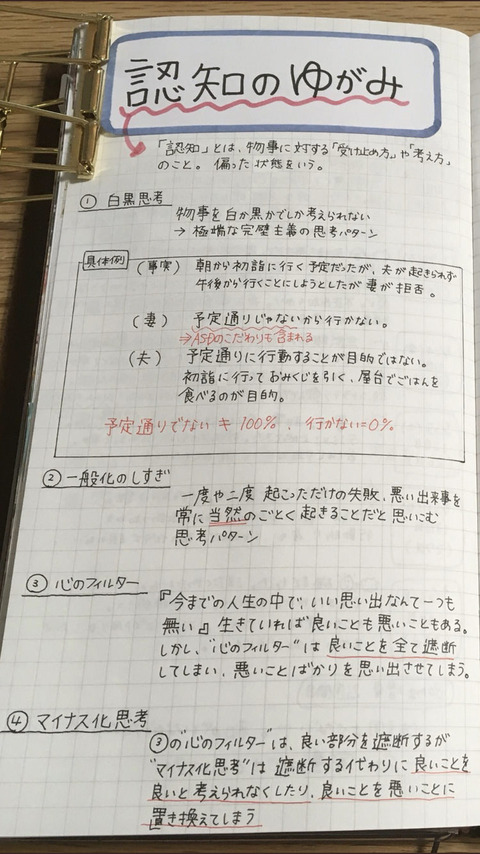 認知のゆがみ
「認知」とは、物事に対する「受け止め方」や「考え方」
のこと。偏った状態をいう。
① 白黒思考
物事を白か黒かでしか考えられない
→ 極端な完璧主義の思考パターン
具体例
(事実) 朝から初詣に行く予定だったが、夫が起きられず
午後から行くことにしようとしたが妻が拒否。
(妻) 予定通りじゃないから行かない。
⇒ASDのこだわりも含まれる
(夫) 予定通りに行動することが目的ではない。
初詣に行っておみくじを引く、屋台でごはんを
食べるのが目的。
予定通りでない ≠ 100%、行かない=0%。
② 一般化のしすぎ
一度や二度 起こっただけの失敗、悪い出来事を
常に当然のごとく起きることだと思いこむ
思考パターン
③ 心のフィルター
『今までの人生の中で、いい思い出なんて一つも
無い』生きていれば良いことも悪いこともある。
しかし、"心のフィルター"は良いことを全て遮断
してしまい、悪いことばかりを思い出させてしまう。
④ マイナス化思考
③の"心のフィルター"は、良い部分を遮断するが
"マイナス化思考"は遮断する代わりに良いことを
良いと考えられなくしたり、良いことを悪いことに
置き換えてしまう